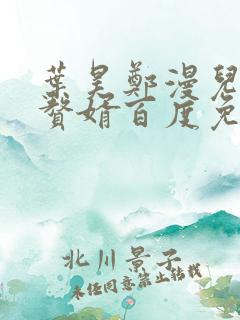 葉昊鄭漫兒
贅婿百度免
北川景子
未经同意禁止转载